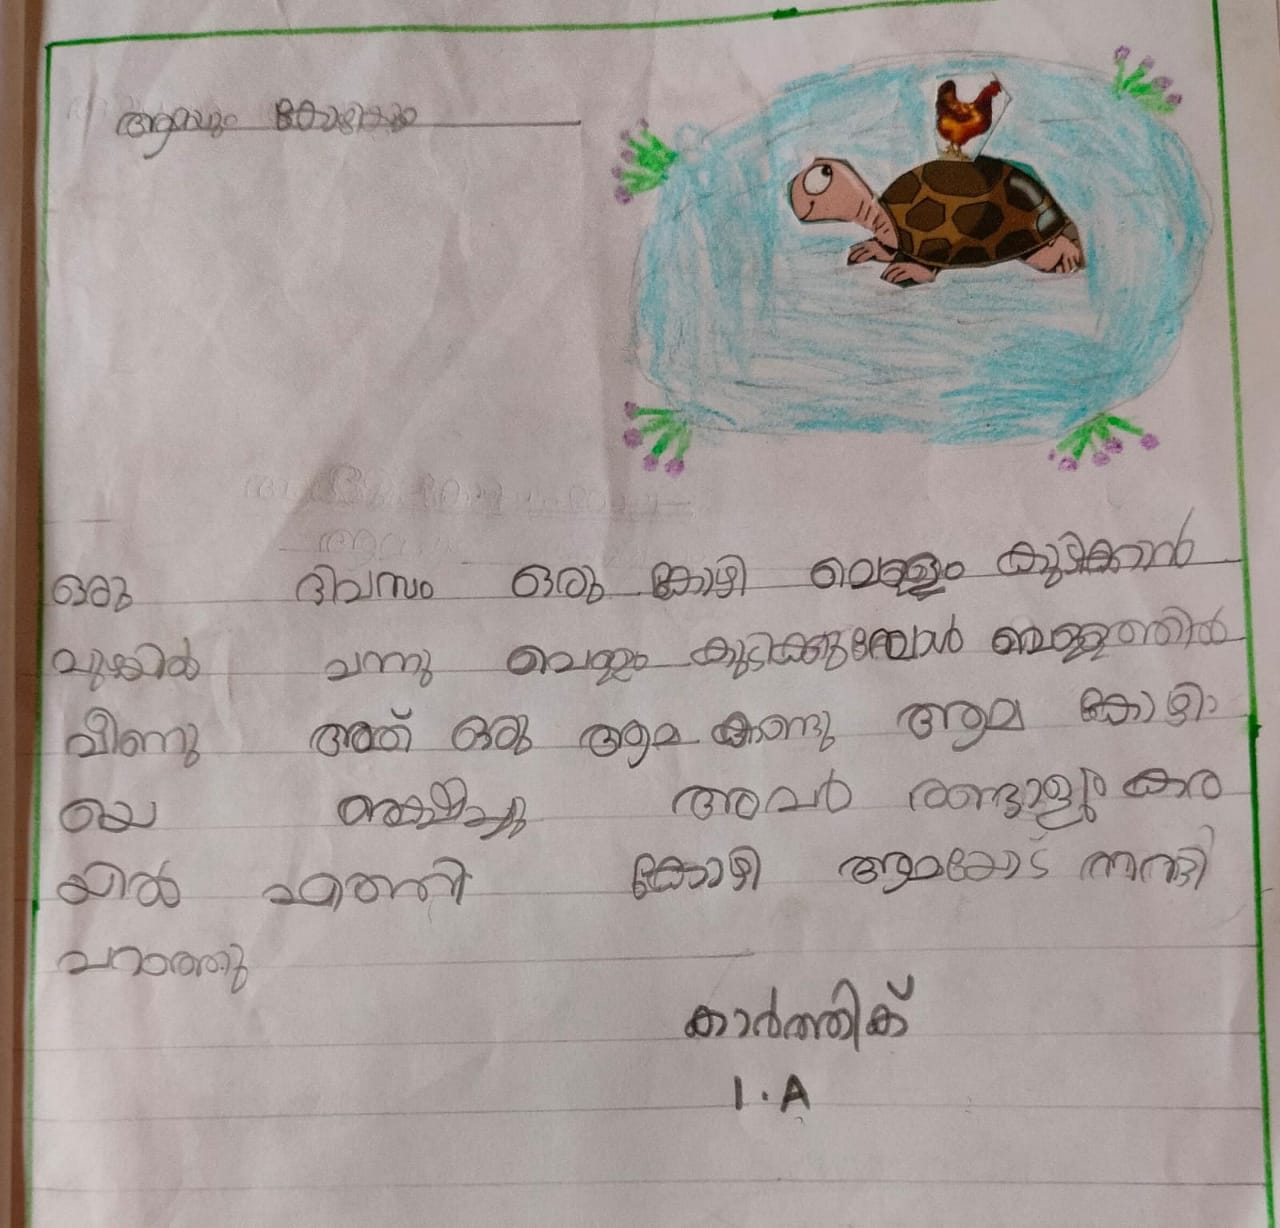 ആമയും കോഴിയും
ഒരു ദിവസം ഒരു കോഴി വെള്ളം കുടിക്കാൻ
പുഴയിൽ വന്നു വെള്ളം കുടിക്കുമ്പോൾ വെള്ളത്തിൽ
വീണു അത് ഒരു ആമ കണ്ടു ആമ കോഴി
യെ രക്ഷിച്ചു അവർ രണ്ടാളും കര
യിൽ എത്തി കോഴി ആമയോട് നന്ദി
പറഞ്ഞു
കാർത്തിക്
1.A